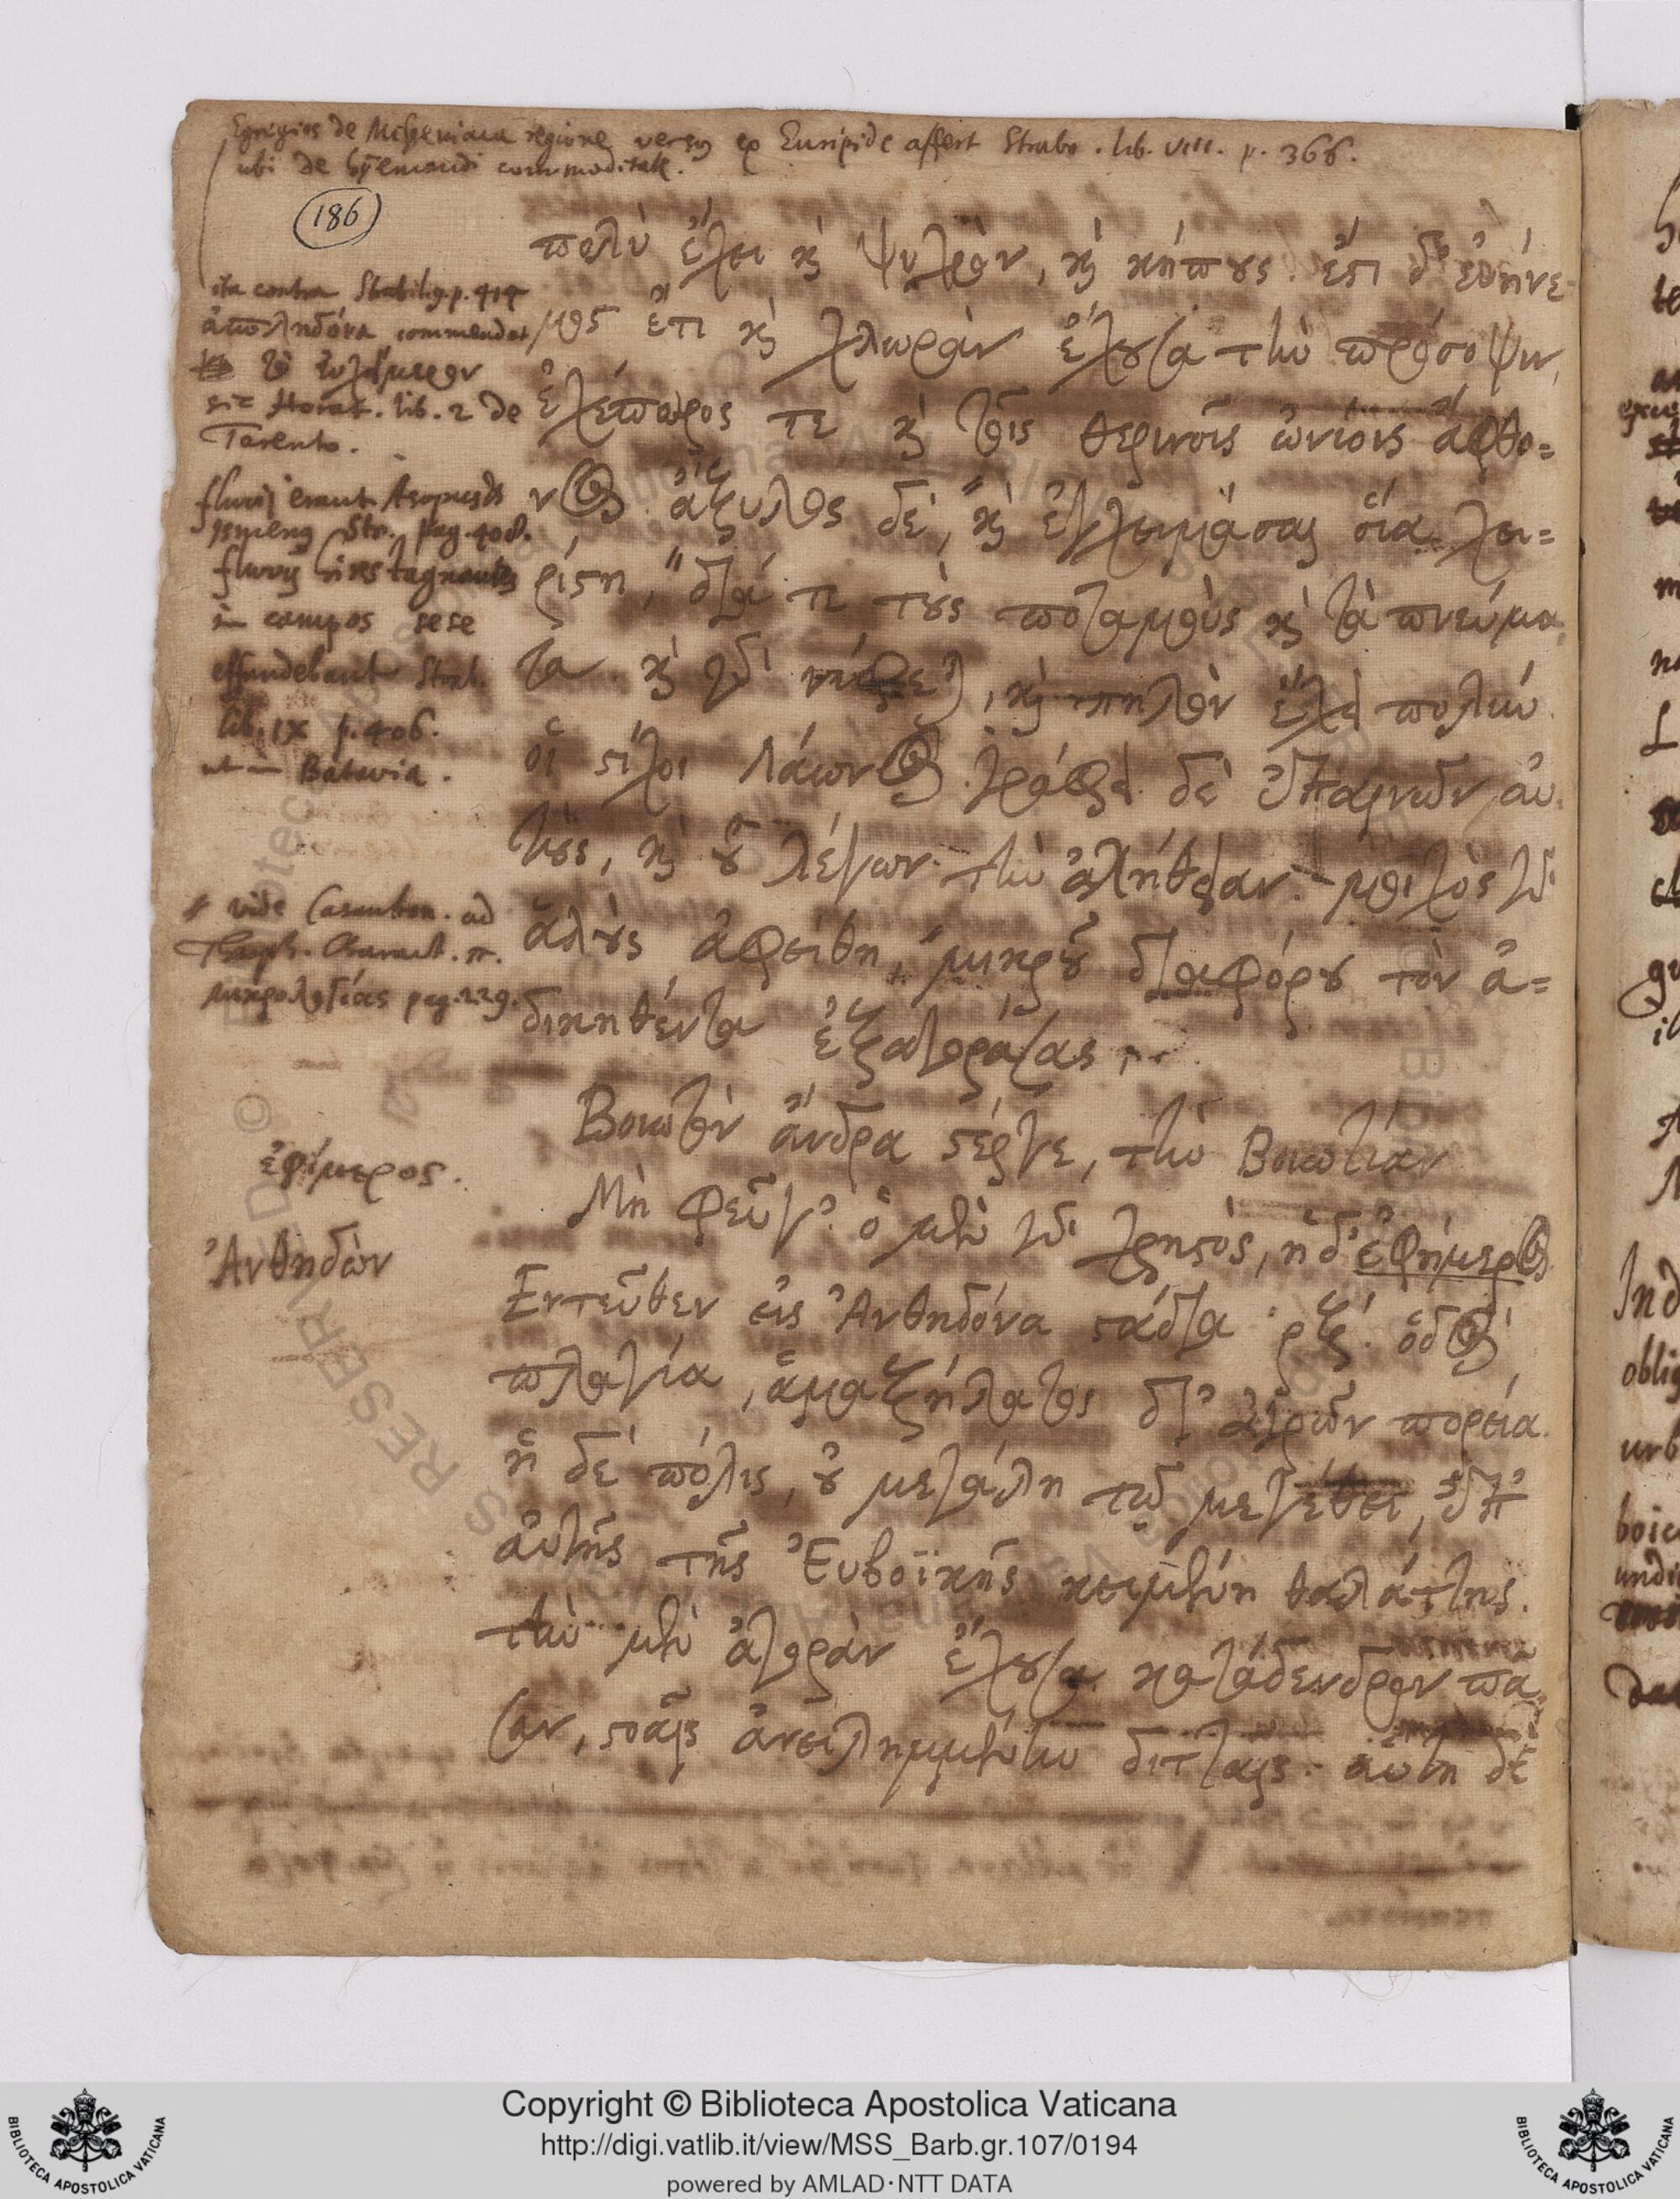 Egregios de Messeniaca regione versus ex Euripide affert Strabo. lib. VIII. p. 366.
ubi de hyemandi commoditate.
186
πολὺ ἔχει κỳ ψυχρὸν, κỳ κήπους. ἔστι δ' εὐήνε-
μος ἔτι κỳ χλωρὰν ἔχουσα τὴν πρόσοψιν,
ἐχέπωρος τε κỳ τοῖς θερινοῖς ὠνίοις ἄφθο=
νος. ἄξυλος δὲ, "κỳ ἐγχειμάσαι οἵα χει=
ρίστη, "διά τε τοὺς ποταμοὺς κỳ τὰ πνεύμα
τα. κỳ γὰρ νίφεται, κỳ πηλὸν ἔχει πολύν.
οἱ στίχοι Λάωνος. γράφει δὲ ἐπαινῶν αὐ
τοὺς, κỳ οὐ λέγων τὴν ἀλήθειαν. μοιχὸς γὰρ
ἁλοὺς ἀφείθη, μικροῦ διαφόρου τὸν ἀ=
δικηθέντα ἐξαγοράσας.
Βοιωτὸν ἄνδρα στέργε, τὴν Βοιωτίαν
Μὴ φεῦγ'. ὁ μὲν γὰρ χρηστὸς, ἡ δ' ἐφήμερος.
Ἐντεῦθεν εἰς Ἀνθηδόνα στάδια ρξ'. ὁδὸς
πλαγία, ἁμαξήλατος δι' ἀγρῶν πορεία.
ἡ δὲ πόλις, οὐ μεγάλη τῷ μεγέθει, ἐπ'
αὐτῆς τῆς Εὐβοϊκῆς κειμένη θαλάττης.
τὴν μὲν ἀγορὰν ἔχουσα κατάδενδρον πᾶ
σαν, στοαῖς ἀνειλημμένην διτταῖς. αὐτὴ δὲ
ita contra Strabo lib. 9. p. 414
commendat
sic Horat. lib. 2 de
Tarento.
fluvij erant Asopus &
Ismenus Str. pag. 408.
fluvij hi restagnantes
in campos sese
effundebant Strab.
lib. IX p. 406.
ut in Batavia.
vide Casaubon. ad
Theoph. Charact. π.
μικρολογίας pag. 229.
ἐφίμερος.
Ἀνθηδὼν
Copyright © Biblioteca Apostolica Vaticana
http://digi.vatlib.it/view/MSS_Barb.gr.107/0194
powered by AMLAD·NTT DATA
BIBLIOTECA APOSTOLICA VATICANA
BIBLIOTECA APOSTOLICA VATICANA